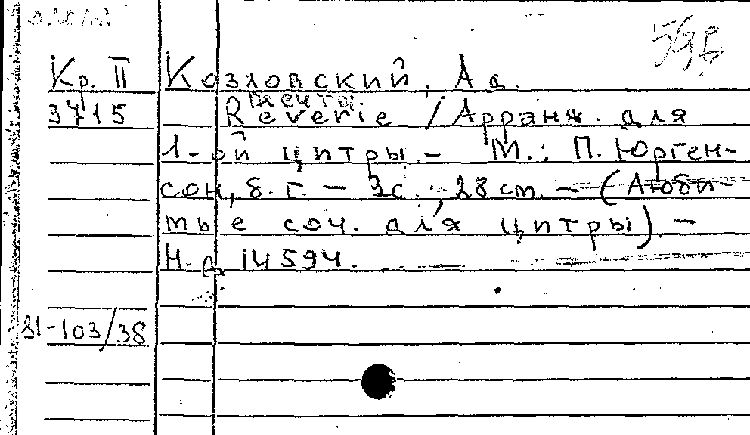 Кр. II Козловский, Ад.
мечта.
3715 Reverie / Арранж. для
1-ой цитры. - М.: П. Юрген-
сон, б. г. - 3с.; 28 cm. - (Люби-
мые соч. для цитры). -
Н.д. 14594.
81-103/38